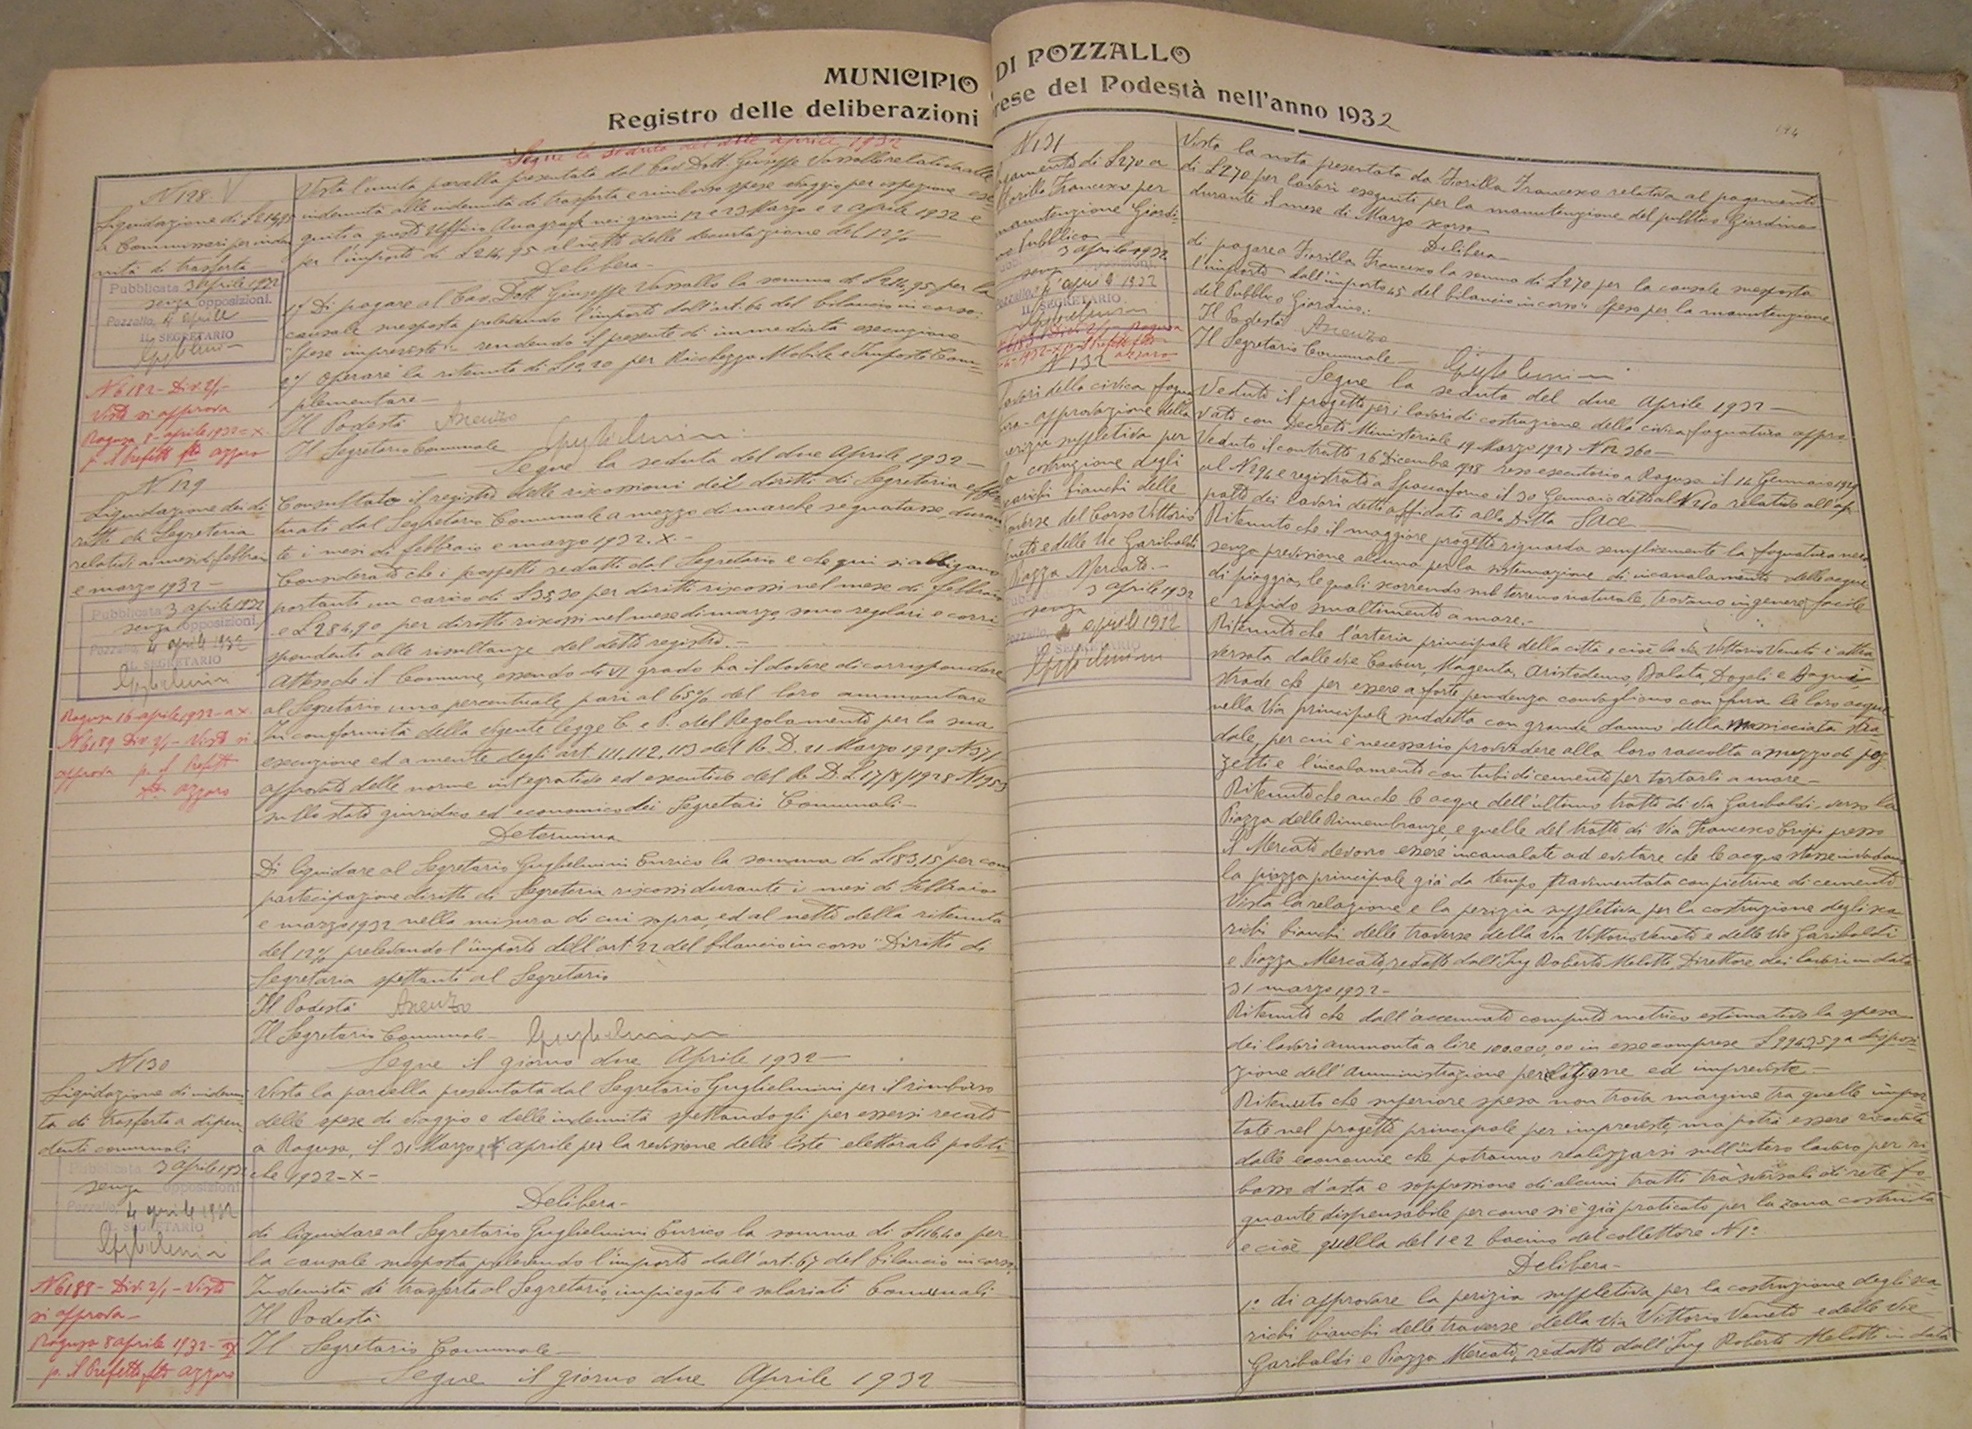 MUNICIPIO DI POZZALLO
Registro delle deliberazioni prese del Podestà nell'anno 1932
194
Segue la seduta del due aprile 1932
N 128. V
Liquidazione di £ 214,95
a Commissari per inden
nità di trasferta
Pubblicata 3 aprile 1932
senza opposizioni.
Pozzallo, 4 aprile
IL SEGRETARIO
Guglielmini
N 6182 - Div. 2/1 -
Visto si approva
Ragusa 8 - aprile 1932 = X
p. Il Prefetto fto Azzaro
Vista l'unita parcella presentata dal Cav. Dott. Giuseppe Vassallo relativa alle
indennità alle indennità di trasferta e rimborso spese viaggio per ispezione ese
guita a questo Ufficio Anagrafe nei giorni 12 e 23 Marzo e 2 aprile 1932 e
per l'importo di £ 214,95 al netto della decurtazione del 12%
Delibera -
1°) Di pagare al Cav. Dott. Giuseppe Vassallo la somma di £ 214,95 per la
causale suesposta prelevando l'importo dall'art. 64 del bilancio in corso:
"Spese impreviste" - rendendo il presente di immediata esecuzione
2°) operare la ritenuta di £ 19,20 per Ricchezza Mobile e Imposta Com=
plementare -
Il Podestà
Il Segretario Comunale Guglielmini
Segue la seduta del due Aprile 1932 -
N 129
Liquidazione dei di
ritti di Segreteria
relativi ai mesi di febbraio
e marzo 1932 -
Pubblicata 3 aprile 1932
senza opposizioni.
Pozzallo, 4 aprile 1932
IL SEGRETARIO
Guglielmini
Ragusa 16 - aprile 1932 - a X.
N 6189 Div 2/1 - Visto si
approva p. Il Prefetto
fto Azzaro
Consultato il registro delle riscossioni dei diritti di Segreteria effet
tuate dal Segretario Comunale a mezzo di marche segnatasse, duran
te i mesi di febbraio e marzo 1932. X. -
Considerato che i prospetti redatti dal Segretario e che qui si allegano
portante un carico di £ 35,30 per diritti riscossi nel mese di febbraio
e £ 284,90 per diritti riscossi nel mese di marzo, sono regolari e corri
spondenti alle risultanze del detto registro. -
Atteso che il Comune, essendo di VI grado ha il dovere di corrispondere
al Segretario una percentuale pari al 65% del loro ammontare
In conformità della vigente legge C. e P. del Regolamento per la sua
esecuzione ed a mente degli art. 111, 112, 113 del R. D. 21 Marzo 1929 N 371
approvato delle norme integrative ed esecutive del R. D. L 17/8/1928 N 1953
sullo stato giuridico ed economico dei Segretari Comunali -
Determina
Di liquidare al Segretario Guglielmini Enrico la somma di £ 183,15 per com
partecipazione diritti di Segreteria riscossi durante i mesi di Febbraio
e marzo 1932 nella misura di cui sopra, ed al netto della ritenuta
del 12% prelevando l'importo dell'art. 22 del bilancio in corso "Diritti di
Segreteria spettanti al Segretario
Il Podestà
Il Segretario Comunale - Guglielmini
Segue il giorno due Aprile 1932 -
N 130
Liquidazione di inden
tà di trasferta a dipen
denti comunali
Pubblicata 3 aprile 1932
senza opposizioni.
Pozzallo, 4 aprile 1932
IL SEGRETARIO
Guglielmini
N 6188 - Div. 2/1 - Visto
si approva -
Ragusa 8 aprile 1932 - X
p. Il Prefetto fto Azzaro
Vista la parcella presentata dal Segretario Guglielmini per il rimborso
delle spese di viaggio e delle indennità spettandogli per essersi recato
a Ragusa, il 31 Marzo aprile per la revisione delle liste elettorali politi
che 1932 - X -
Delibera -
di liquidare al Segretario Guglielmini Enrico la somma di £ 116,40 per
la causale suesposta prelevando l'importo dall'art. 67 del bilancio in corso
Indennità di trasferta al Segretario, impiegati e salariati Comunali
Il Podestà
Il Segretario Comunale -
Segue il giorno due Aprile 1932
N 131
Pagamento di £ 270 a
Fiorilla Francesco per
manutenzione Giardi-
no Pubblico -
3 aprile 1932
senza opposizioni.
Pozzallo, 4 aprile 1932
IL SEGRETARIO
Guglielmini
Vista la nota presentata da Fiorilla Francesco relativa al pagamento
di £ 270 per lavori eseguiti per la manutenzione del pubblico Giardino
durante il mese di Marzo scorso
Delibera -
di pagare a Fiorilla Francesco la somma di £ 270 per la causale suesposta
l'importo dall'importo 45 del bilancio in corso: Spese per la manutenzione
del Pubblico Giardino:
Il Podestà
Il Segretario Comunale - Guglielmini
Segue la seduta del due Aprile 1932 -
N 132
Lavori della civica fogna
tura - approvazione della
perizia suppletiva per
la costruzione degli
scarichi bianchi delle
traverse del Corso Vittorio
Veneto e delle Vie Garibaldi
Piazza Mercato. -
3 aprile 1932
senza opposizioni.
Pozzallo, 4 aprile 1932
IL SEGRETARIO
Guglielmini
Veduto il progetto per i lavori di costruzione della civica fognatura appro
vato con Decreto Ministeriale 19 Marzo 1927 N 12360 -
Veduto il contratto 26 Dicembre 928 reso esecutorio a Ragusa il 14 Gennaio 1929
al N 294 e registrato a Spaccaforno il 30 Gennaio detto al N 210 relativo all'ap
palto dei lavori detti affidati alla Ditta Sace -
Ritenuto che il maggiore progetto riguarda semplicemente la fognatura nera
senza previsione alcuna per la sistemazione di incanalamento delle acque
di pioggia, le quali scorrendo sul terreno naturale, trovano in genere facile
e rapido smaltimento a mare. -
Ritenuto che l'arteria principale della città e cioè la via Vittorio Veneto è attra
versata dalle vie Cavour, Magenta, Aristodemo, Balata, Dogali e Bagni,
strade che per essere a forte pendenza convogliano con furia le loro acque
nella Via principale suddetta con grande danno della massicciata stra
dale, per cui è necessario provvedere alla loro raccolta a mezzo di poz
zetti e l'incalamento con tubi di cemento per portarli a mare -
Ritenuto che anche le acque dell'ultimo tratto di via Garibaldi verso la
Piazza delle Rimembranze, e quelle del tratto di Via Francesco Crispi presso
il Mercato devono essere incanalate ad evitare che le acque stesse invadano
la piazza principale già da tempo pavimentata con pietrine di cemento
Vista la relazione e la perizia suppletiva per la costruzione degli sca
richi bianchi delle traverse della via Vittorio Veneto e delle Vie Garibaldi
e Piazza Mercato, redatto dall'Ing Roberto Melotti Direttore dei lavori in data
31 marzo 1932 -
Ritenuto che dall'accennato computo metrico estimativo la spesa
dei lavori ammonta a lire 100.000,00 in esse comprese a disposi
zione dell'Amministrazione ed impreviste. -
Ritenuto che superiore spesa non trova margine tra quelle impor
tate nel progetto principale per impreviste, ma potrà essere ricavata
dalle economie che potranno realizzarsi sull'intero lavoro per ri
basso d'asta e soppressione di alcuni tratti trasversali di rete fo
gnante dispensabile per come si è già praticato per la zona costruita
e cioè quella del 1 e 2 bacino del collettore N 1°
Delibera -
1°. di approvare la perizia suppletiva per la costruzione degli sca
richi bianchi delle traverse della Via Vittorio Veneto e delle Vie
Garibaldi e Piazza Mercato, redatto dall'Ing Roberto Melotti in data